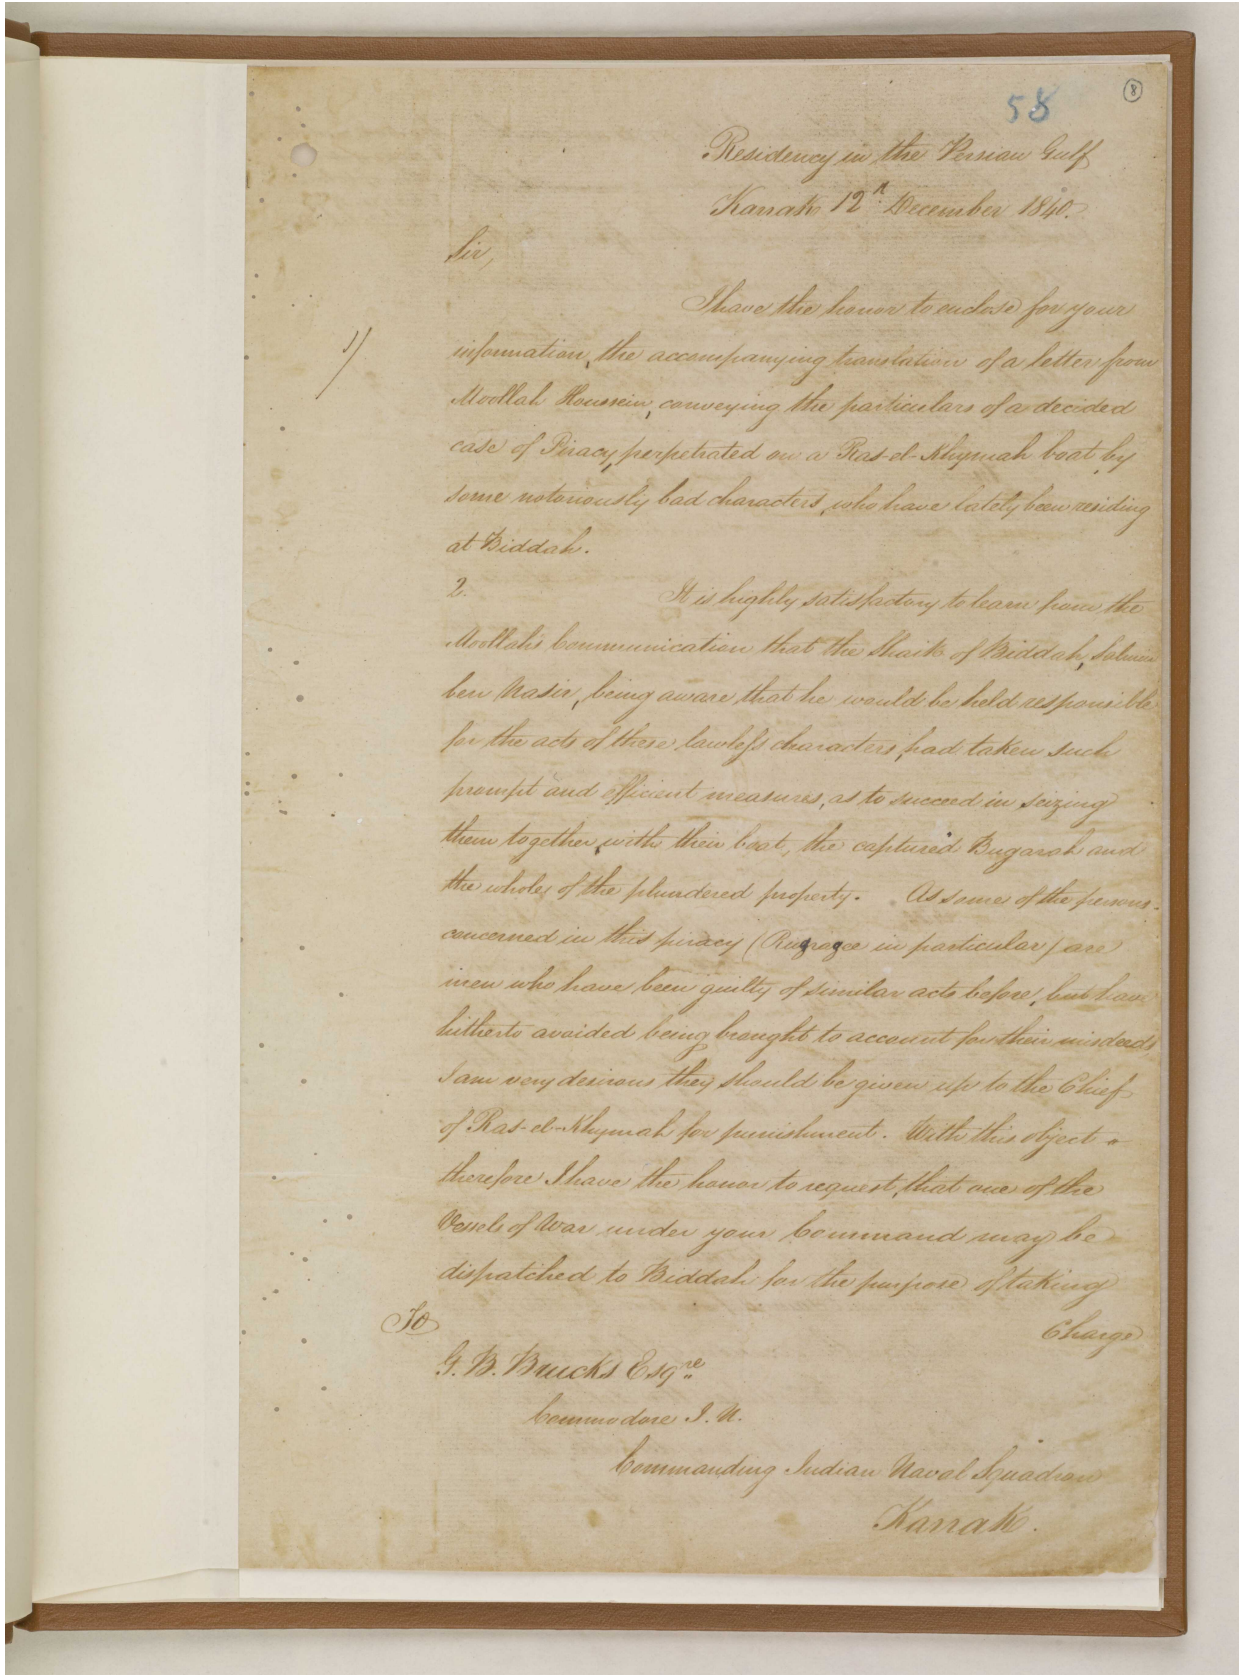 58
8
Residency in the Persian Gulf
Karrak 12th December 1840.
Sir,
I have the honor to enclose for your
1/
information, the accompanying translation of a letter from
Moollah Houssein, conveying the particulars of a decided
case of Piracy, perpetrated on a Ras-el-Khymah boat by
some notoriously bad characters, who have lately been residing
at Biddah.
2. It is highly satisfactory to learn from the
Moollah's Communication that the Shaik of Biddah, Salmin
ben Nasir, being aware that he would be held responsible
for the acts of these lawless characters, had taken such
prompt and efficient measures, as to succeed in seizing
them together, with their boat, the captured Bugarah and
the whole, of the plundered property. As some of the persons
concerned in this piracy ( in particular) are
men who have been guilty of similar acts before, but have
hitherto avoided being brought to account for their misdeeds
I am very desirous they should be given up to the Chief
of Ras-el-Khymah for punishment. With this object
therefore I have the honor to request, that one of the
Vessels of War under your Command may be
dispatched to Biddah for the purpose of taking
Charge
To
G. B. Brucks Esqre
Commodore I. N.
Commanding Indian Naval Squadron
Karrak.